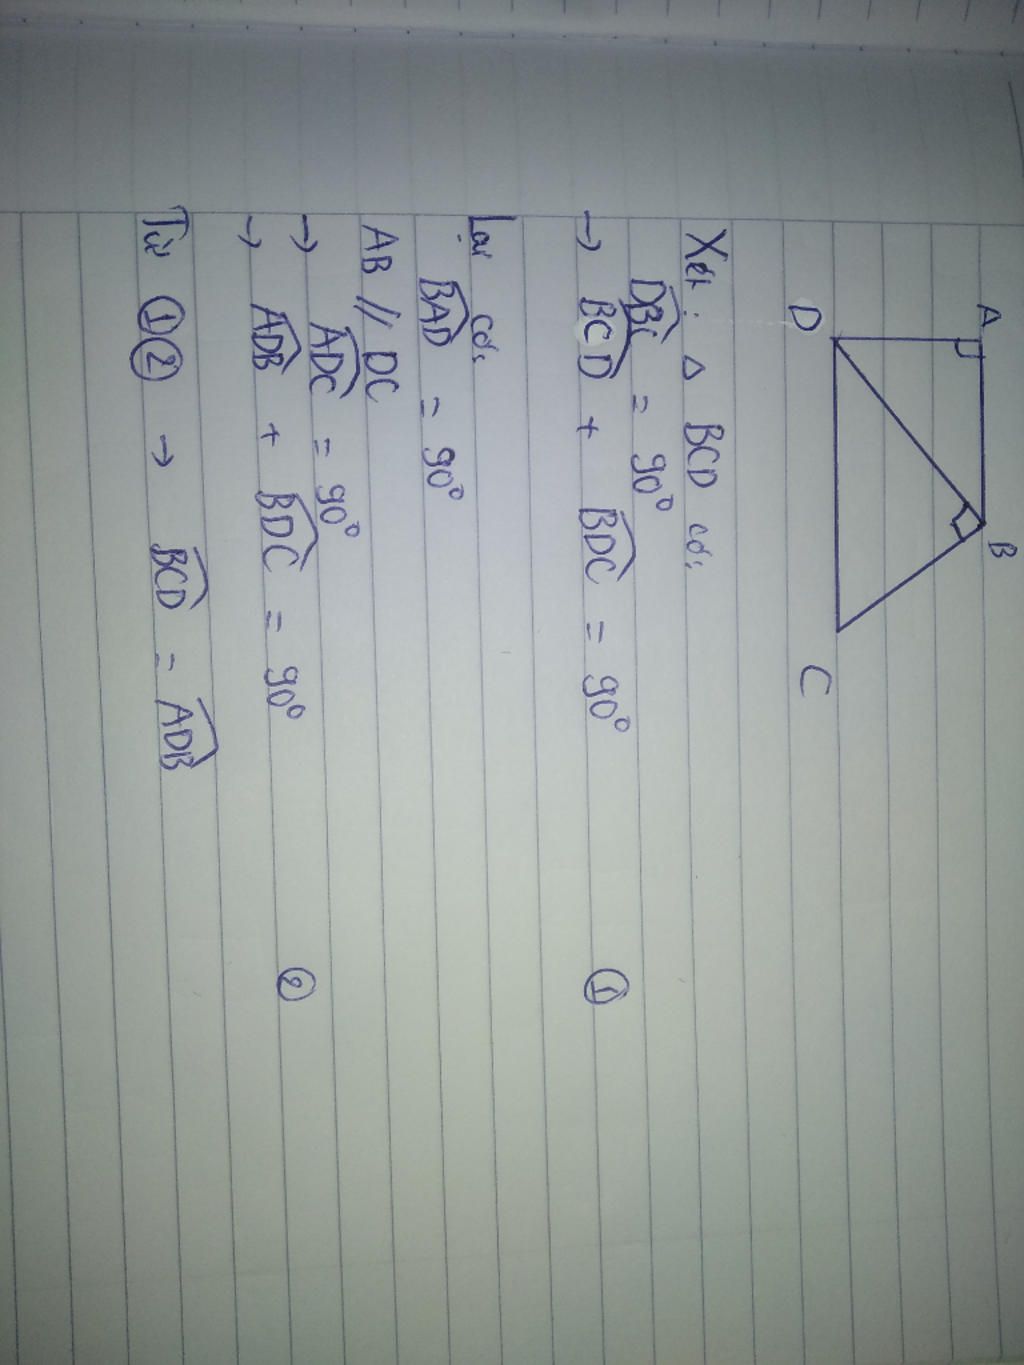 A
B
D
C
Xét: Δ BCD có:
D̂BC = 90°
→ B̂CD + B̂DC = 90° ①
Lại có:
B̂AD = 90°
AB // DC
→ ÂDC = 90°
→ ÂDB + B̂DC = 90° ②
Từ ①② → B̂CD = ÂDB